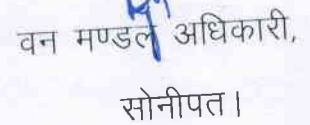 वन मण्डल अधिकारी,
सोनीपत।